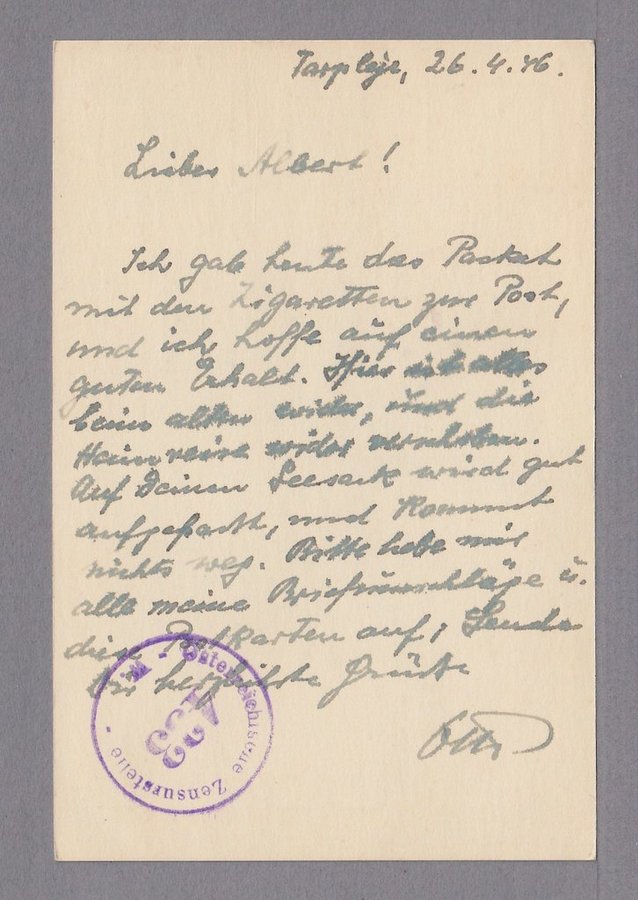 Tarpleje, 26.4.46.
Lieber Albert!
Ich gab heute das Packet
mit den Zigaretten zur Post,
und ich hoffe auf einen
guten Erhalt. Hier ist alles
beim alten wider, und die
Heimreise wider verschoben.
Auf Deinen Seesack wird gut
aufgepasst, und kommt
nichts weg. Bitte hebe mir
alle meine Briefumschläge u.
diese Postkarten auf; Sende
Dir herzlichste Grüße
Otto
Österreichische Zensurstelle - W. -
433